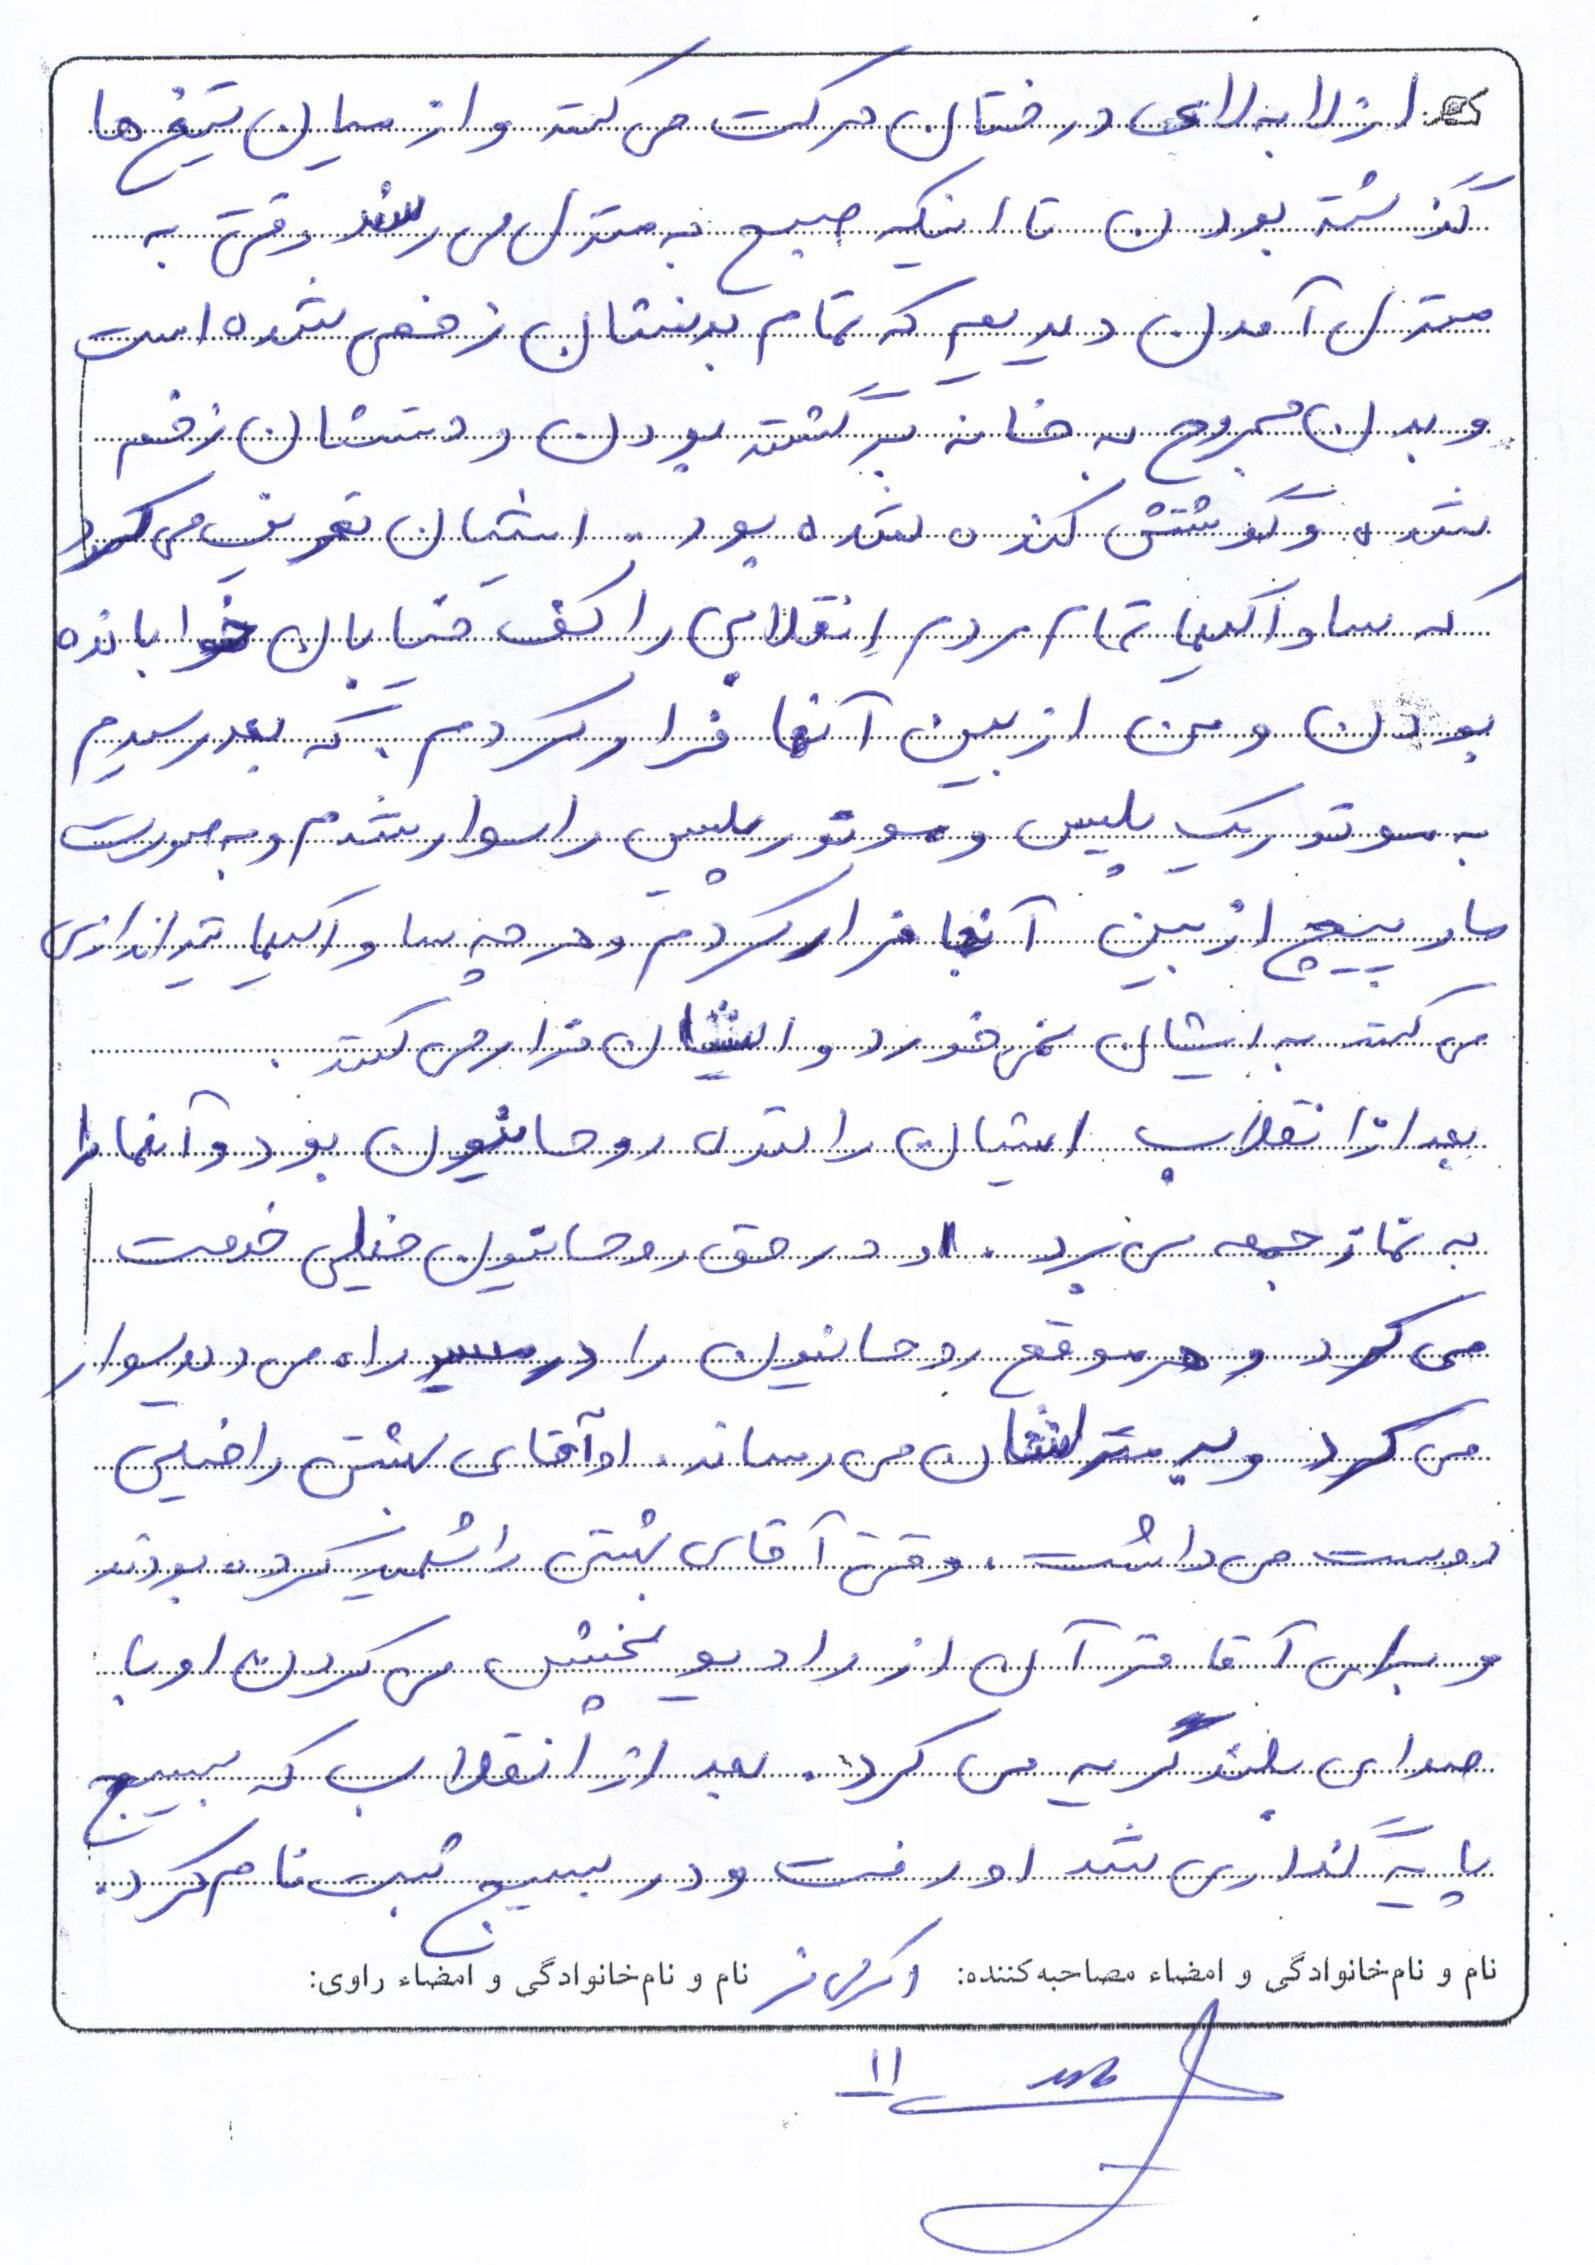 از لا به لای درختان حرکت می کنند و از میان تیغ ها
گذشته بودن تا اینکه صبح به منزل می رسند وقتی به
منزل آمدن دیدیم که تمام بدنشان زخمی شده است
و بدن مجروح به خانه برگشته بودن و دستشان زخم
شده و گوشتش کنده شده بود .. ایشان تعریف می کرد
که ساواکیها تمام مردم انقلابی را کف خیابان خوابانده
بودن و من از بین آنها فرار کردم . که بعد رسیدم
به موتور یک پلیس و موتور پلیس را سوار شدم و به صورت
مار پیچ از بین آنها فرار کردم و هر چه ساواکیها تیراندازی
می کنند به ایشان نمی خورد و ایشان فرار می کنند .
بعد از انقلاب ایشان راننده روحانیون بود و آنها را
به نماز جمعه می برد . او در حق روحانیون خیلی خدمت
می کرد و هر موقع روحانیون را در مسیر راه می دید سوار
می کرد و به منزلشان می رساند . او آقای بهشتی را خیلی
دوست می داشت . وقتی آقای بهشتی را شهید کرده بودند
و برای آقا قرآن از رادیو پخش می کردن او با
صدای بلند گریه می کرد . بعد از انقلاب که بسیج
پایه گذاری شد او رفت و در بسیج ثبت نام کرد .
نام و نام‌خانوادگی و امضاء مصاحبه‌کننده: نام و نام‌خانوادگی و امضاء راوی:
۱۱